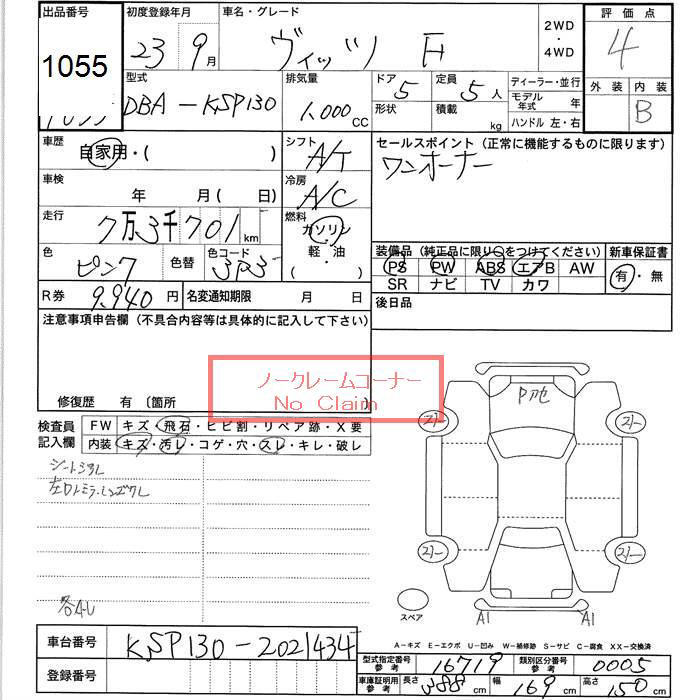 出品番号 初度登録年月 車名・グレード 2WD・4WD 評価点
1055 23 9月 ヴィッツ F 4
型式 排気量 ドア 定員 ディーラー・並行 外装 内装
DBA-KSP130 1,000CC 5 5人 モデル年式 年 B
形状 積載 kg ハンドル 左・右
車歴 シフト セールスポイント (正常に機能するものに限ります)
自家用・( ) A/T ワンオーナー
車検 冷房
年 月( 日) A/C
走行 燃料
7万3千701km ガソリン・軽油・( )
色 色替 色コード 装備品 (純正品に限り○をつけてください) 新車保証書
ピンク 3P3 PS PW ABS エアB AW 有・無
SR ナビ TV カワ
R券 9,940円 名変通知期限 月 日 後日品
注意事項申告欄 (不具合内容等は具体的に記入して下さい)
ノークレームコーナー
No Claim
修復歴 有 〔箇所
検査員 FW キズ・飛石・ヒビ割・リペア跡・X要
記入欄 内装 キズ・汚レ・コゲ・穴・スレ・キレ・破レ
スペア
A1 A1
A-キズ E-エクボ U-凹み W-補修跡 S-サビ C-腐食 XX-交換済
車台番号 KSP130-2021434
型式指定番号 参考 16719 類別区分番号 参考 0005
登録番号
車庫証明用 参考 長さ 388cm 幅 169cm 高さ 150cm